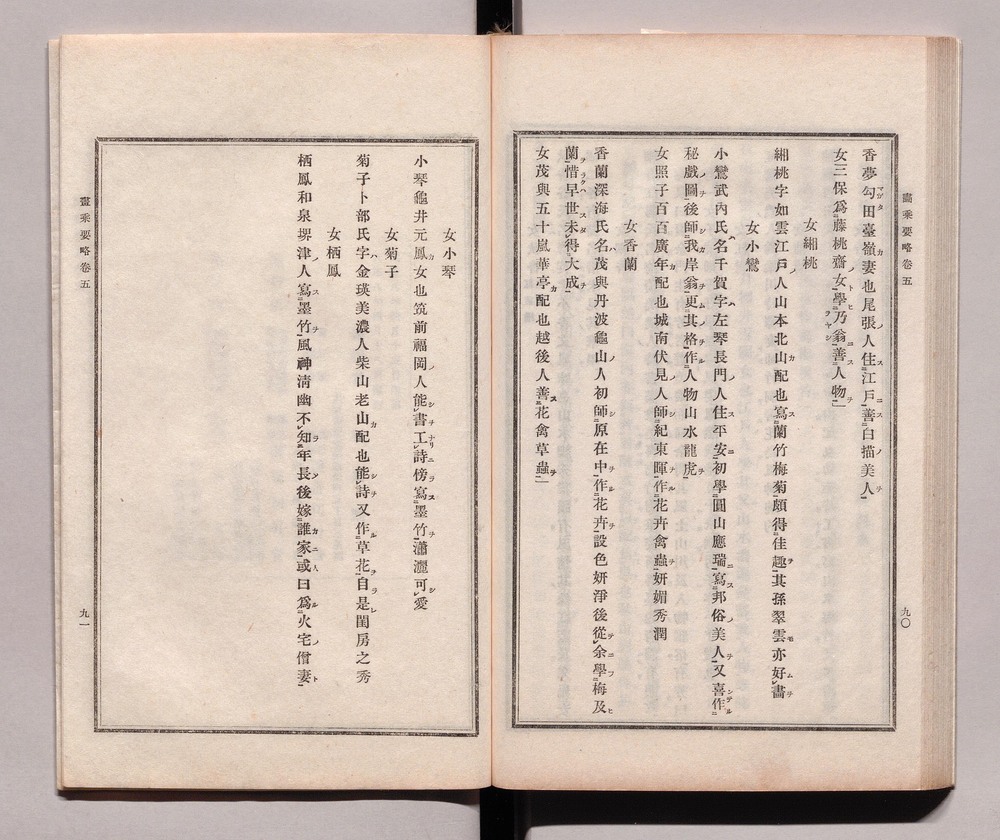 畫乘要略卷五
九〇
香夢勾田臺嶺妻也尾張人住江戶善白描美人
女三保爲藤桃齋女學乃翁善人物
女緗桃
緗桃字如雲江戶人山本北山配也寫蘭竹梅菊頗得佳趣其孫翠雲亦好畵
女小鸞
小鸞武內氏名千賀字左琴長門人住平安初學圓山應瑞寫邦俗美人又喜作
秘戲圖後師我岸翁更其格作人物山水龍虎
女照子百百廣年配也城南伏見人師紀東暉作花卉禽蟲妍媚秀潤
女香蘭
香蘭深海氏名茂與丹波龜山人初師原在中作花卉設色妍淨後從余學梅及
蘭惜早世未得大成
女茂與五十嵐華亭配也越後人善花禽草蟲
女小琴
小琴龜井元鳳女也筑前福岡人能書工詩傍寫墨竹瀟灑可愛
女菊子
菊子卜部氏字金瑛美濃人柴山老山配也能詩又作草花自是閨房之秀
女栖鳳
栖鳳和泉堺津人寫墨竹風神清幽不知年長後嫁誰家或曰爲火宅僧妻
畫乘要略卷五
九一